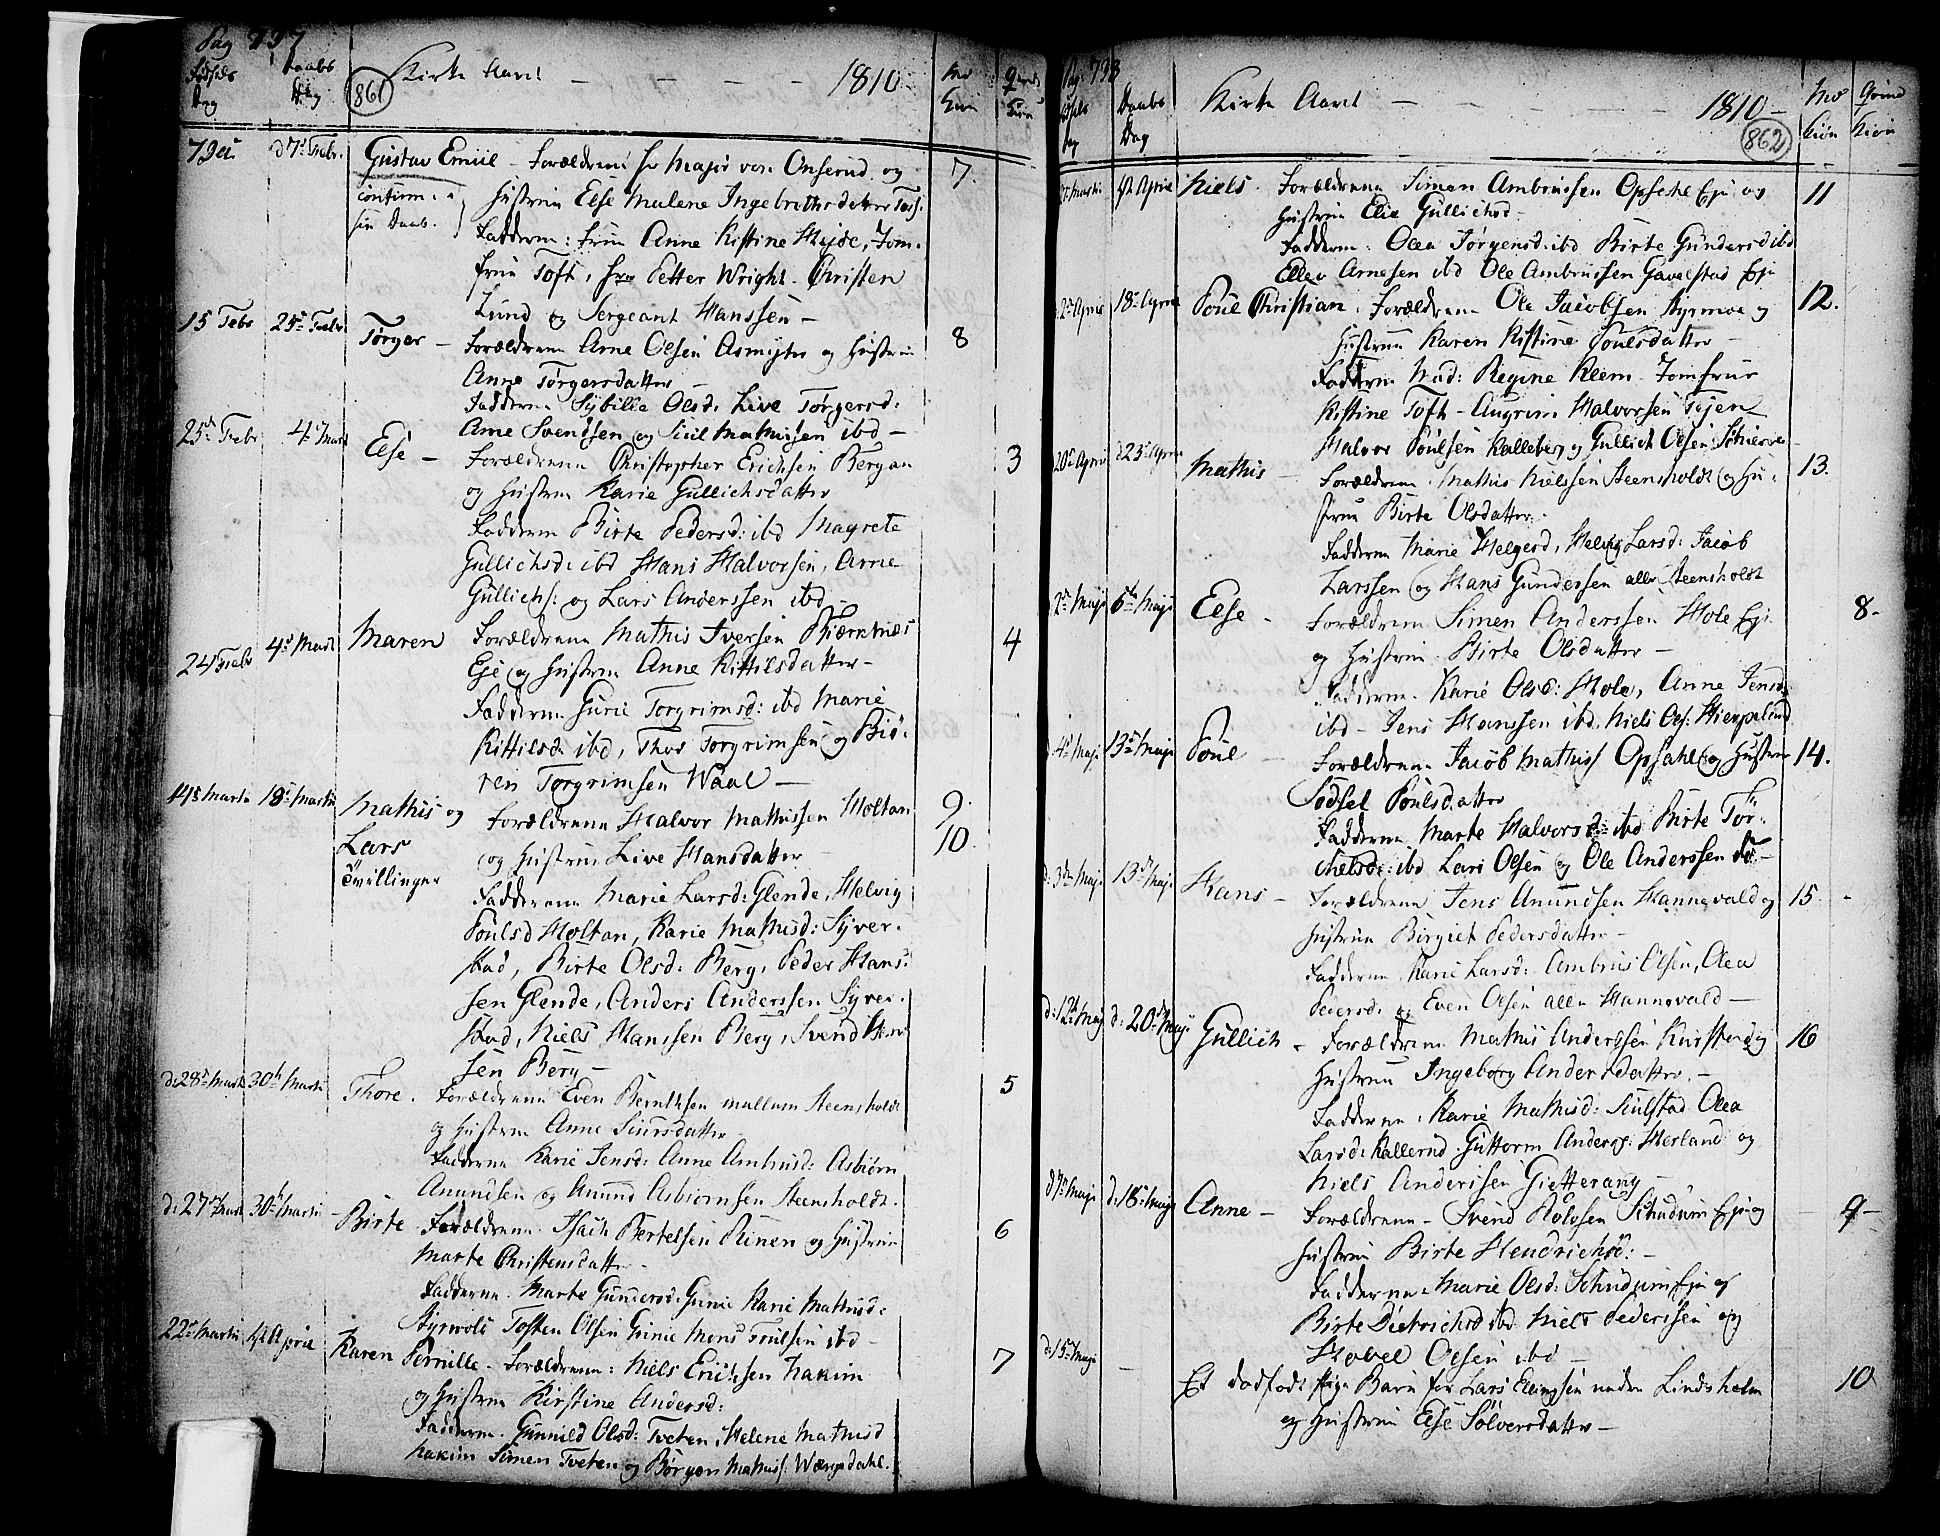 Pag 737
Fødsels Dag
Daabs Dag
861
Kirke Aaret - - - - 1810
M Kiøn
Qvinde Kiøn
7 Jan. d 7 Febr. Gustav Emiil - Forældrene Hr Major von Onserud og 7.
confirm. sin Daab.
Hustrue Else Malene Ingebrethsdatter
Fadderne: Frue Anne Kistine Hejde, Jom-
frue Toft, Hr Petter Wright. Christen
Lund og Sergeant Hanssen -
15 Febr 25 Febr Tørger - Forældrene Arne Olsen Asmyhr og Hustrue 8
Anne Tørgersdatter -
Fadderne Sybille Olsd: Live Tørgersd:
Arne Svendsen og Siul Mathissen ibd -
25 Febr 4 Marti Else - Forældrene Christopher Erichsen Bergan 3
og Hustrue Karie Gullichsdatter
Fadderne Birte Pedersd: ibd Magrete
Gullichsd: ibd Hans Halvorsen, Arne
Gullichs: og Lars Anderssen ibd -
24 Febr 4 Marti Maren Forældrene Mathis Iversen 4
Eje og Hustrue Anne Kittilsdatter -
Fadderne Gurie Torgrimsd: ibd Marie
Kittilsd: ibd, Thor Torgrimsen og Biø-
ren Torgrimsen Waal -
18 Martii Mathis og Forældrene Halvor Mathissen Holtan 9.
Lars og Hustrue Live Hansdatter - 10.
Tvillinger
Fadderne Marie Larsd: Glende, Helvig
Poulsd Holtan, Karie Mathisd: Syver-
stad, Birte Olsd: Berg, Peder Hans-
sen Glende, Anders Anderssen Syver-
stad, Niels Hanssen Berg, Svend Han-
sen Berg -
d: 28 Marti 30 Marti Thore. Forældrene Even Bernthsen mellem Steensholdt 5
og Hustrue Anne Siursdatter
Fadderne Karie Jensd: Anne Amundsd: Asbiørn
Anundsen og Anund Asbiørnsen Steensholdt.
d: 27 Marti 30 Marti Birte Forældrene Isach Bertelsen Runen og Hustrue 6
Marte Christensdatter -
Fadderne. Marte Gundersd: Gunie Karie Mathisd:
Tosten Olsen Gunie Mons Poulsen ibd -
22 Martii 1st Aprill Karen Pernille. Forældrene: Niels Erichsen Hakim 7
og Hustrue Kirstine Andersd:
Fadderne. Gunnild Olsd: Tveten, Helene Mathisd
Hakim Simen Tveten og Børger Mathiss: Wærgedahl.
Pag. 738
Fødsels Dag
Daabs Dag
Kirke Aaret - - - 1810
862
Md Kiøn
Qvind Kiøn
Marti 1st Aprill Niels. Forældrene Simen Ambrussen Opsahl Eje og 11
Hustrue Elie Gullichsd -
Fadderne: Olea Jørgensd: ibd Birte Gundersd ibd
Ellev Arnesen ibd Ole Ambrussen Gavelstad Eje
2 Aprill 18 Aprill Poul Christian. Forældrene Ole Jacobsen Myrmoe og 12.
Hustrue Karen Kistine Poulsdatter -
Fadderne Mad: Regine Kleem. Jomfrue
Kistine Toft - Augrim Halvorsen Teien
Halvor Poulsen Kalleberg og Gullich Olsen
20 Aprill d 23 Aprill Mathis - Forældrene. Mathis Nielssen Steensholdt og Hu- 13.
strue Birte Olsdatter.
Fadderne Marie Helgesd, Helvig Larsd: Jacob
Larssen og Hans Gunderssen alle Steensholdt
2 Maji 6 Maji Else - Forældrene Simen Anderssen Hole Eje 8-
og Hustrue Birte Olsdatter -
Fadderne. Karie Olsd: Hole, Anne Jensd:
ibd - Jens Hanssen ibd. Niels Ols:
4 Maji 13 Maji Poul - Forældrene Jacob Mathiss Opsahl og Hustrue 14.
Sødsel Poulsdatter
Fadderne Marte Halvorsd: ibd Birte Tør-
chelsd: ibd Lars Olsen og Ole Anderssen ibd -
d: 3 Maji 13 Maji Hans - Forældrene Jens Anundsen Hannevald og 15.
Hustrue Birgiet Pedersdatter -
Fadderne, Karie Larsd: Ambrus Olsen, Olea
Pedersd: og Even Olsen alle Hannevald -
d: 12 Maji d: 20 Maji Gullich - Forældrene Mathis Anderssen og 16
Hustrue Ingeborg Andersdatter. -
Fadderne. Karie Mathisd: Siulstad Olea
Larsd: Kallerud. Guttorm Anderss: Herland og
Niels Anderssen Gietterang -
d 7 Maji d: 18 Maji Anne - Forældrene - Svend Rolvsen Schudum Eje og 9-
Hustrue Birte Hendrichsd: -
Fadderne: Marie Olsd: Schudum Eje og
Birte Dietrichsd ibd Niels Pederssen og
Havel Olsen ibd -
d: 15 Maji - Et dødfødt Pige Barn for Lars Ellingsen under Lindsholm 10
og Hustrue Else Sølversdatter -